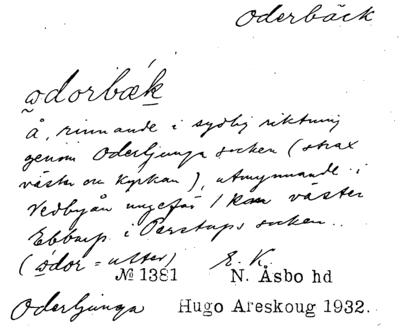 Oderbäck
odorbæk
å, rinnande i sydlig riktning
genom Oderljunga socken (strax
väster om kyrkan), utmynnande i
Vedbyån ungefär 1 km väster
Ebbarp i Perstorps socken.
(odor = utter) E. K.
№ 1381 N. Åsbo hd
Oderljunga Hugo Areskoug 1932.